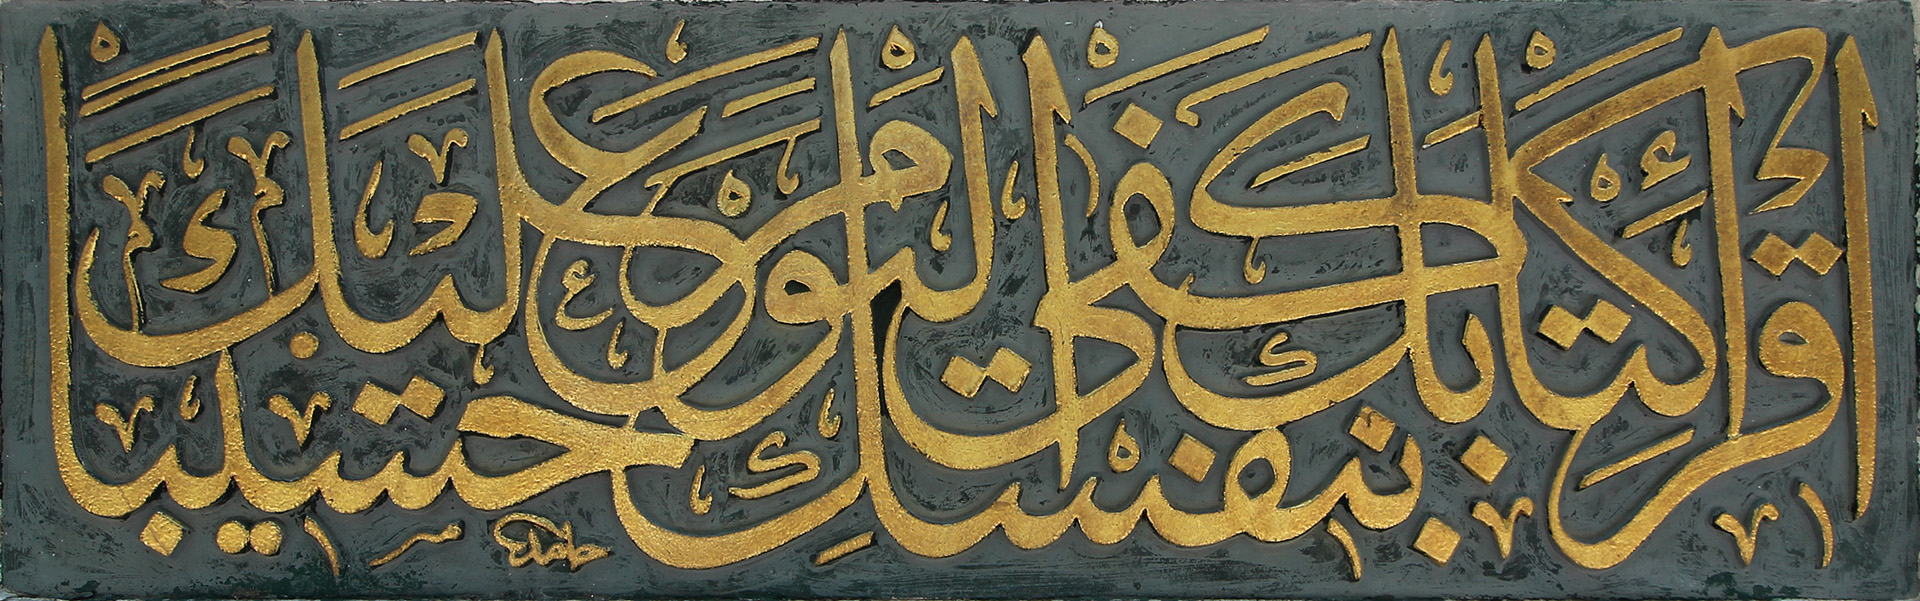 اقْرَأْ كِتَابَكَ كَفَىٰ بِنَفْسِكَ الْيَوْمَ عَلَيْكَ حَسِيبًا